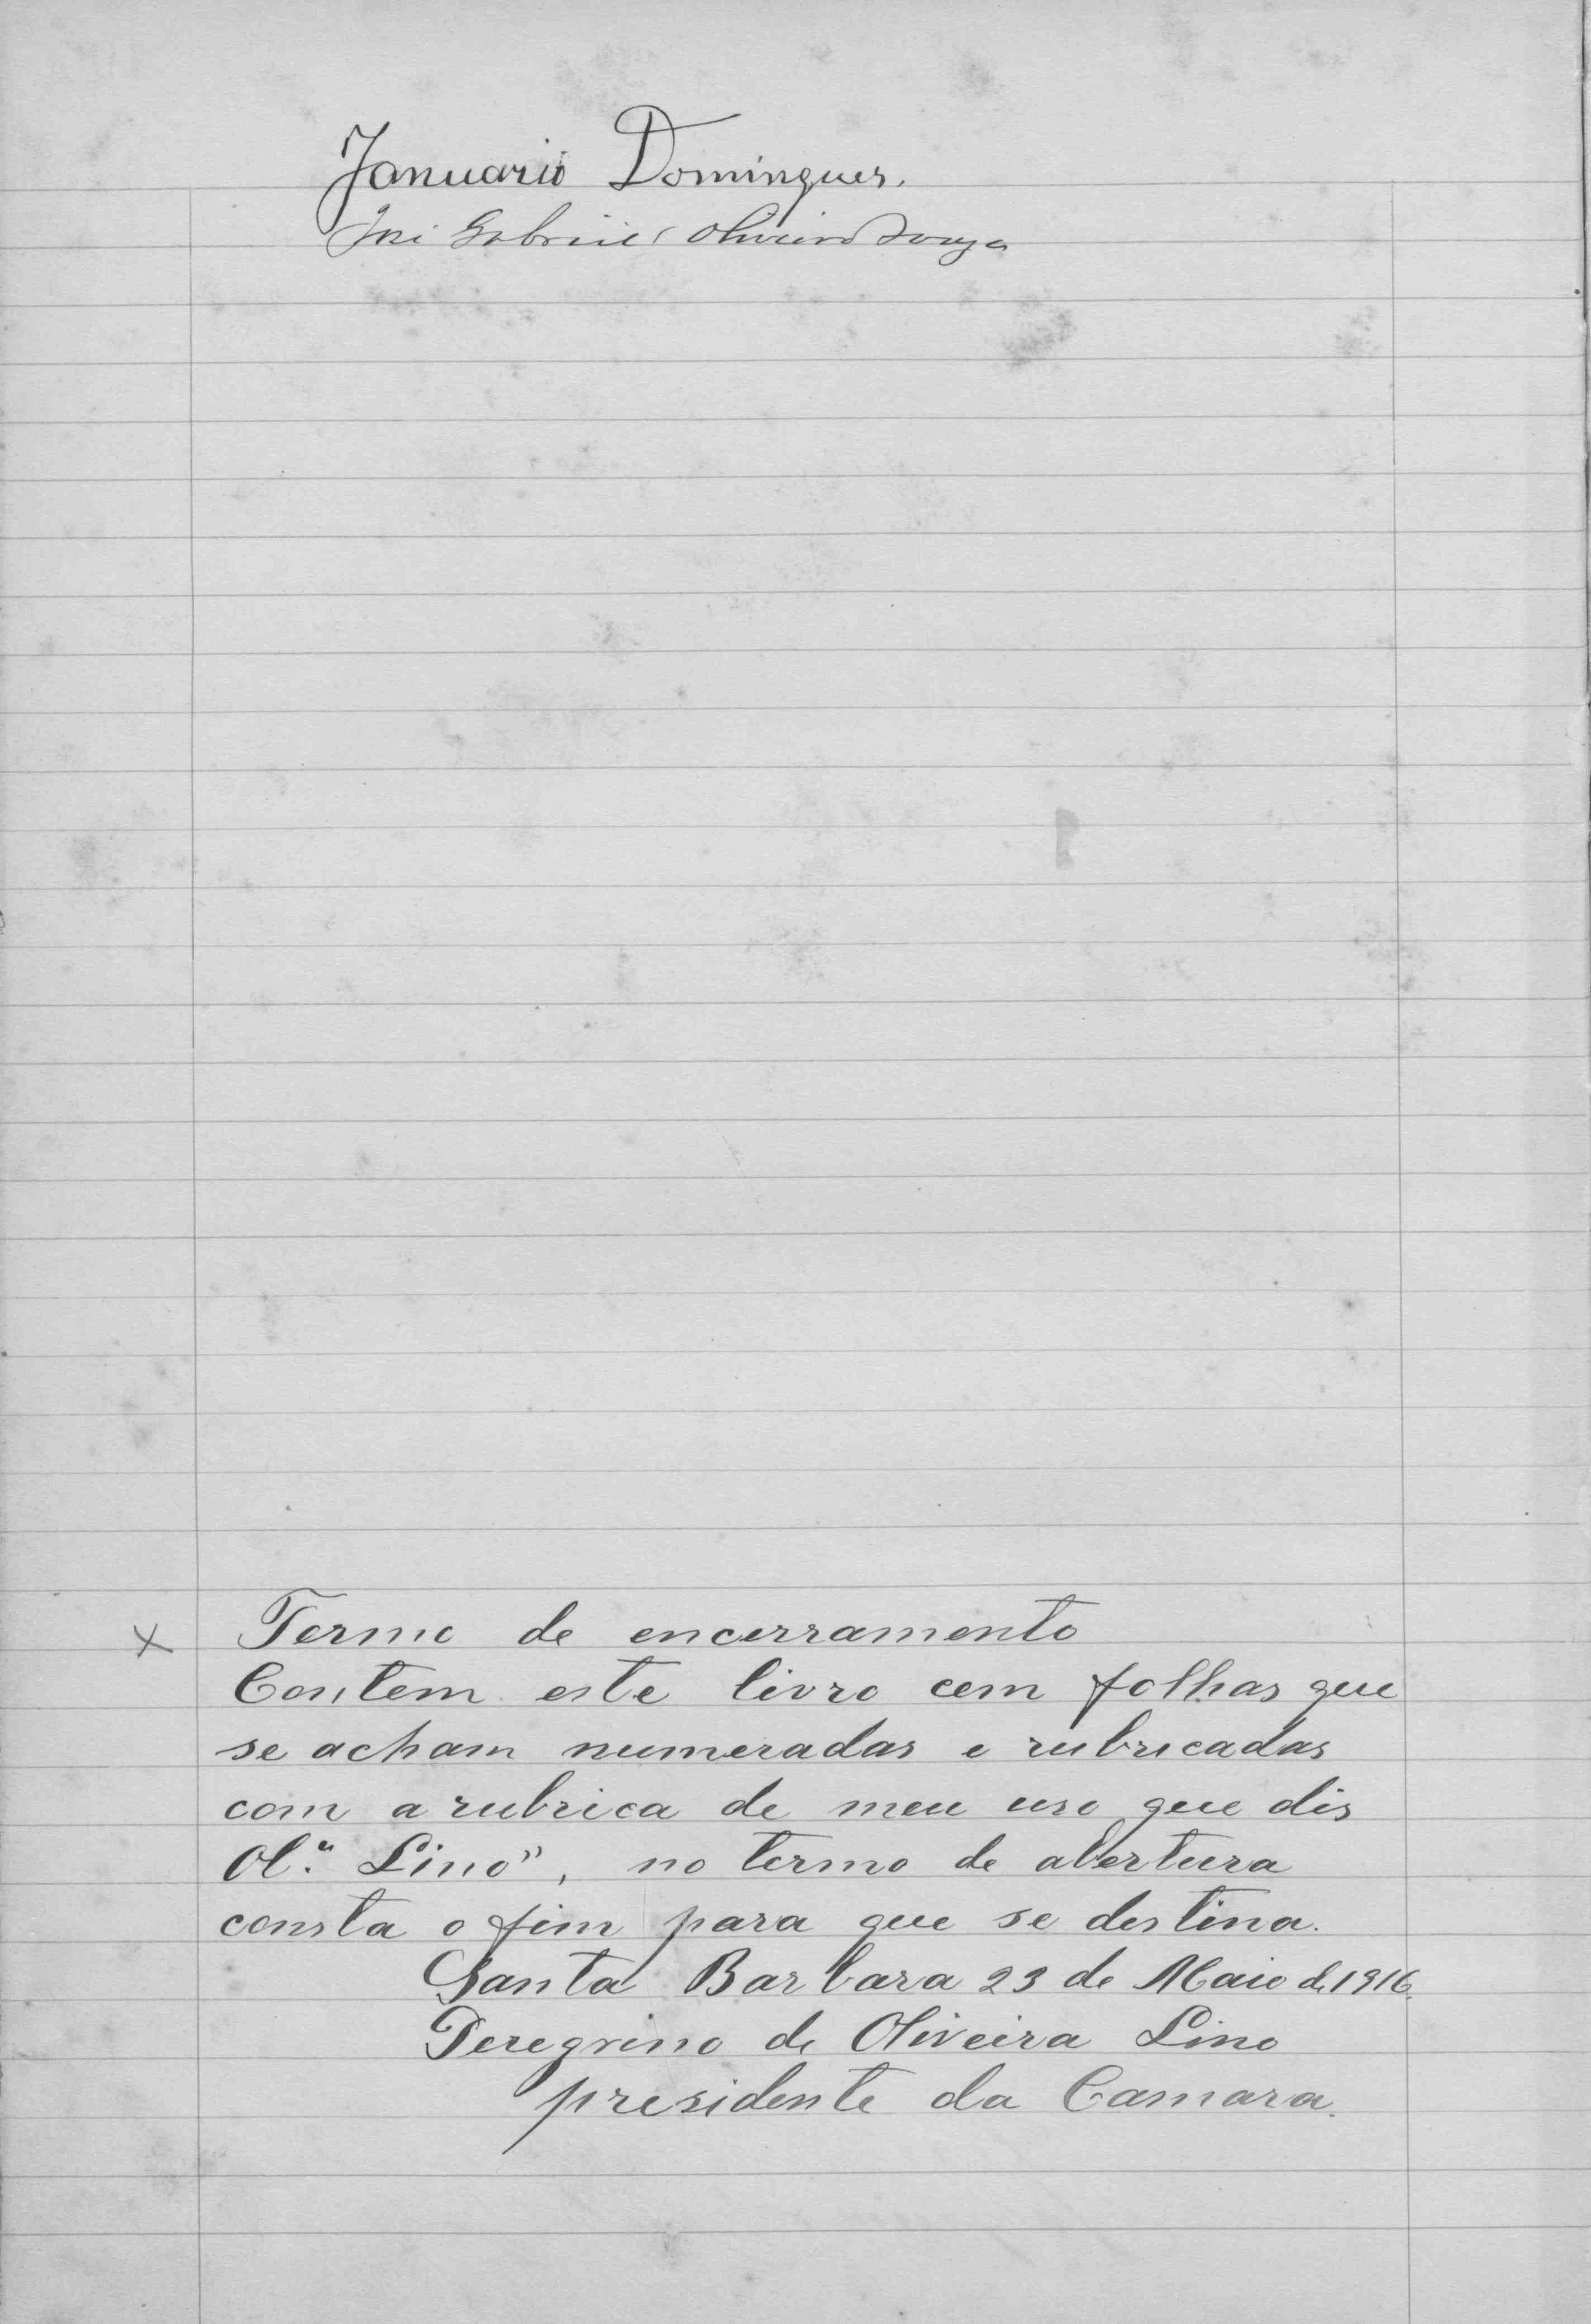 Januario Domingues.
José Gabriel Oliveira Souza
× Termo de encerramento
Contem este livro cem folhas que
se acham numeradas e rubricadas
com a rubrica de meu uso que dis
Ol.ª Lino", no termo de abertura
consta o fim para que se destina.
Santa Barbara 23 de Maio de 1916.
Peregrino de Oliveira Lino
presidente da Camara.